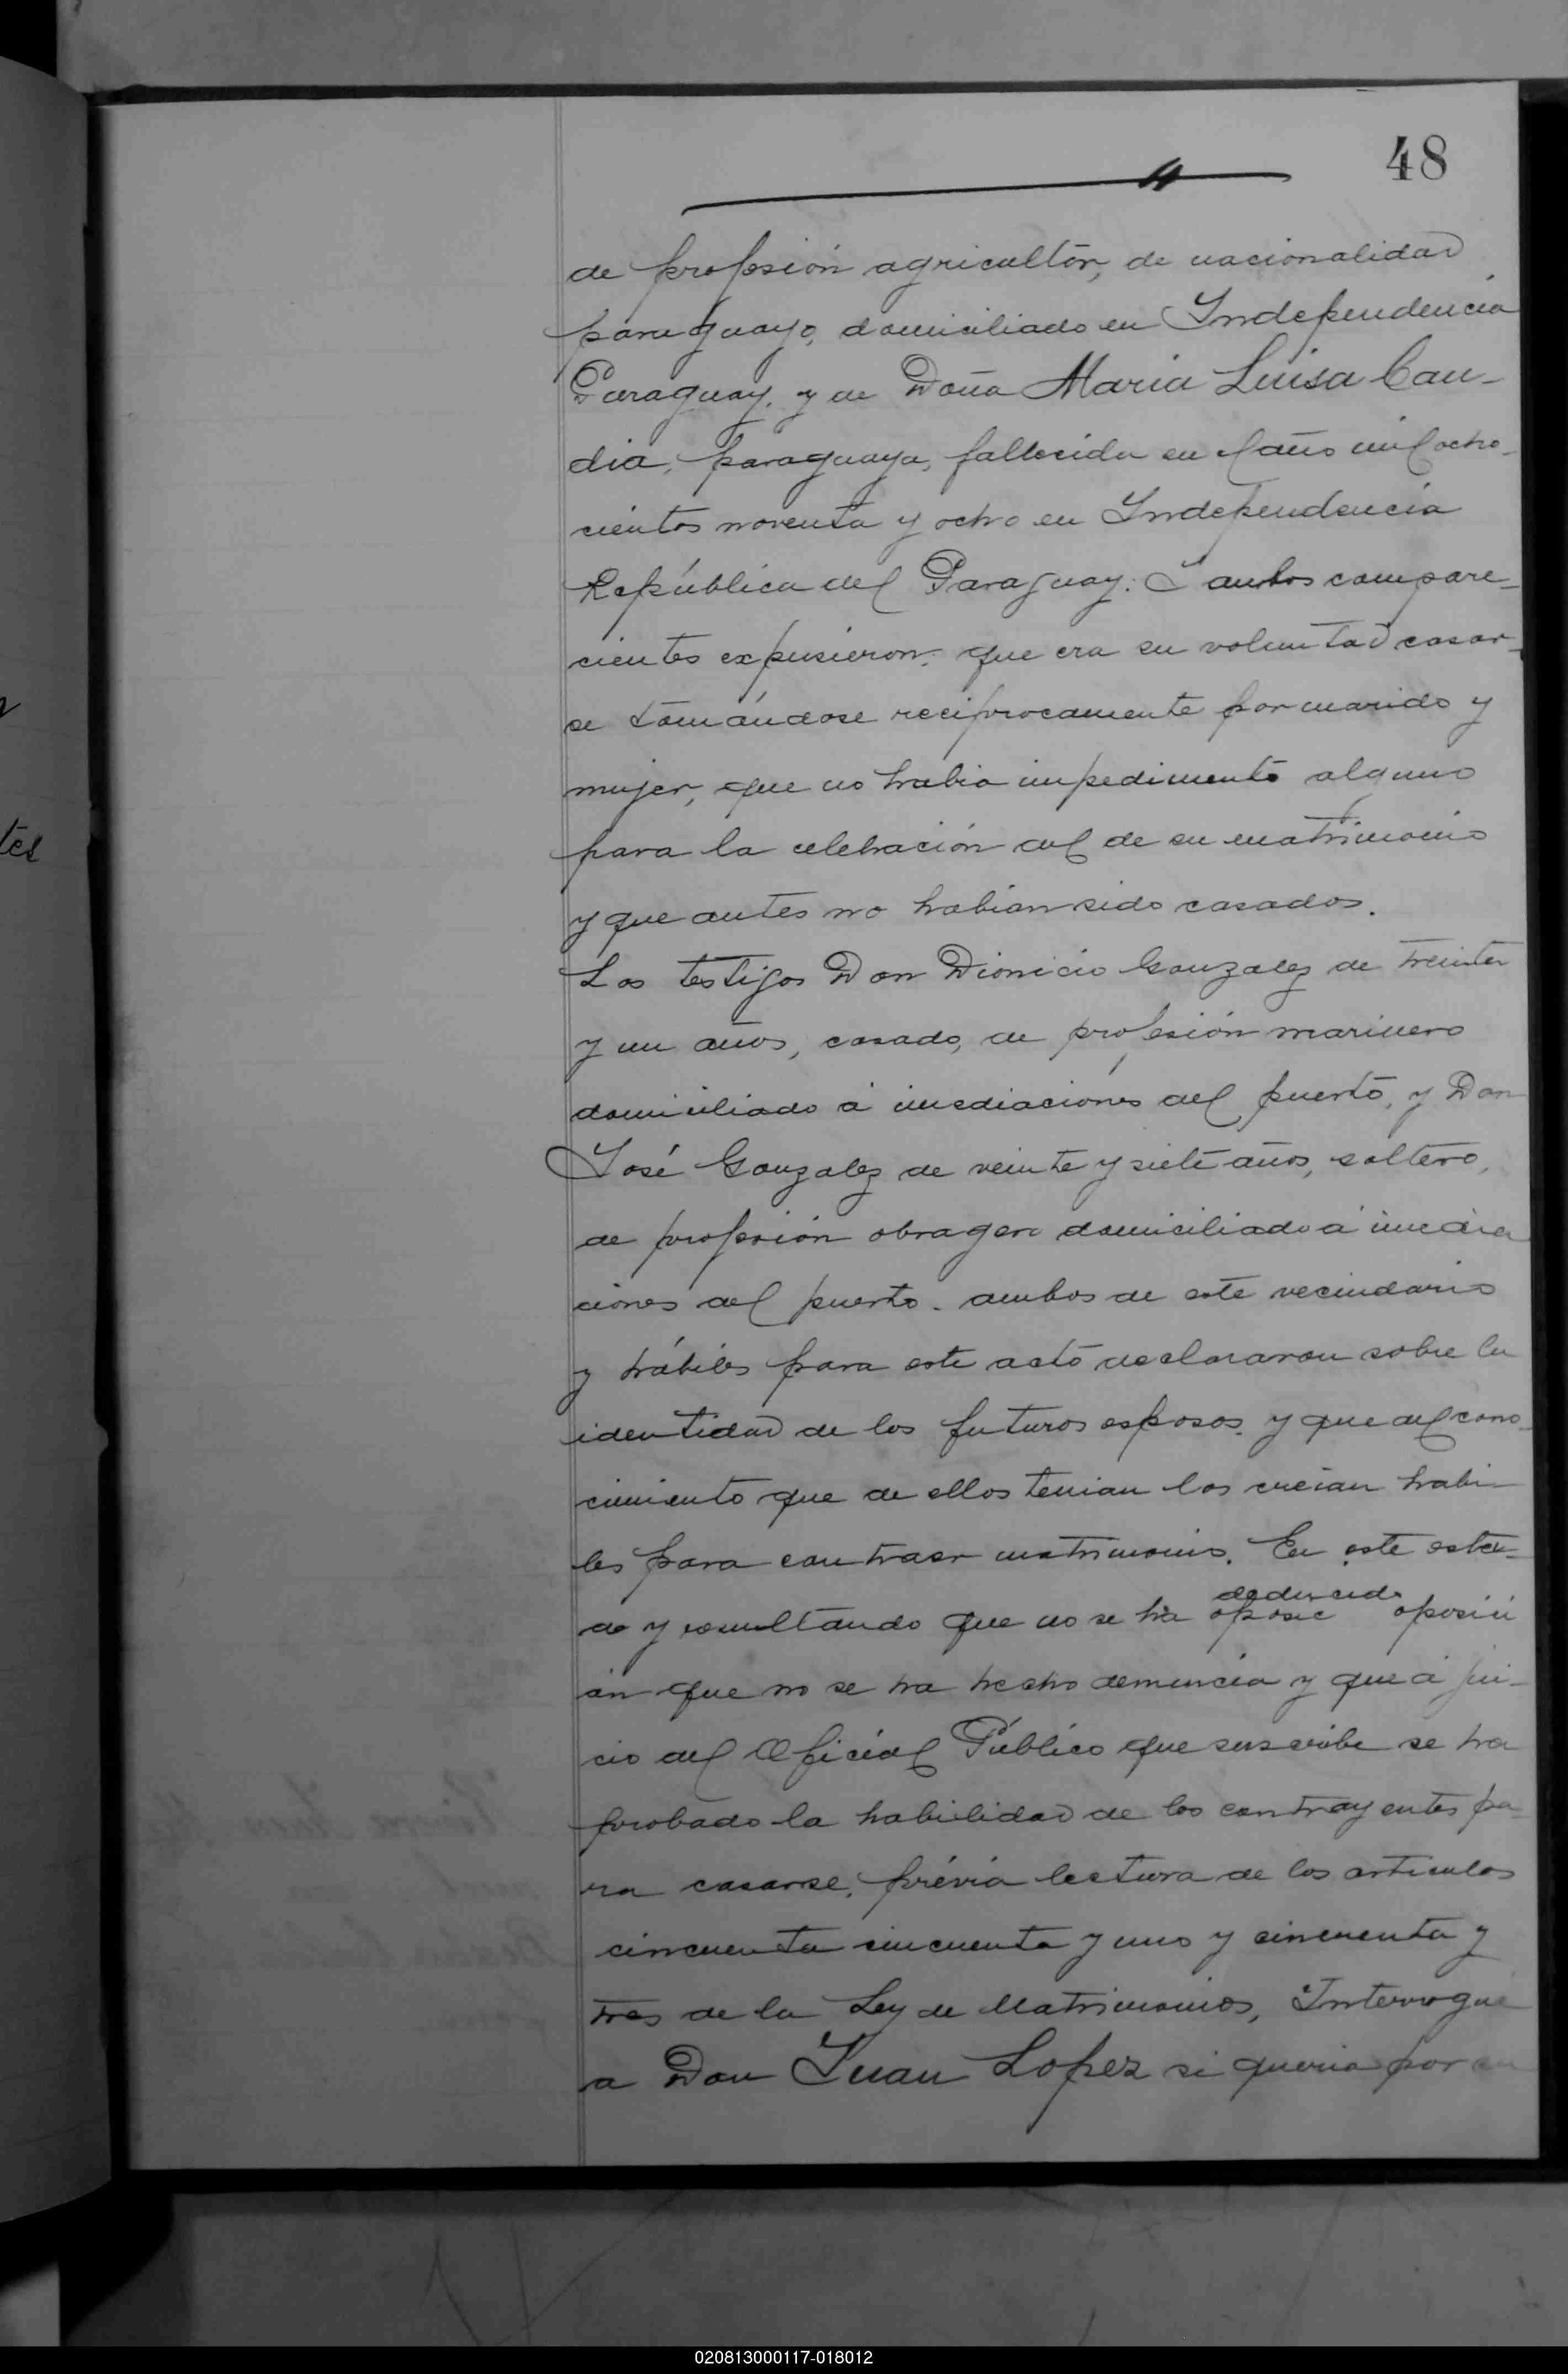 48
de profesión agricultor, de nacionalidad
paraguayo, domiciliado en Independencia
Paraguay, y de Doña Maria Luisa Can-
dia, paraguaya, fallecida en el año mil ocho-
cientos noventa y ocho en Independencia
República del Paraguay. I ambos compare-
cientes expusieron: que era su voluntad casar-
se tomándose reciprocamente por marido y
mujer, que no habia impedimento alguno
para la celebración del de su matrimonio
y que antes no habian sido casados.
Los testigos Don Dionicio Gonzalez de treinta
y un años, casado, de profesión marinero
domiciliado á imediaciones del puerto, y Don
José Gonzalez de veinte y siete años, soltero,
de profesión obragero domiciliado á imedia
ciones del puerto. ambos de este vecindario
y hábiles para este acto declararon sobre la
identidad de los futuros esposos, y que del cono-
cimiento que de ellos tenian los creian habi-
les para contraer matrimonio. En este esta-
do y resultando que no se ha oposic deducido oposici
ón que no se ha hecho denuncia y que á jui-
cio del Oficial Público que suscribe se ha
probado la habilidad de los contrayentes pa-
ra casarse, prévia lectura de los articulos
cincuenta cincuenta y uno y cincuenta y
tres de la Ley de Matrimonios, Interrogué
a Don Juan Lopez si queria por su
tes
020813000117-018012